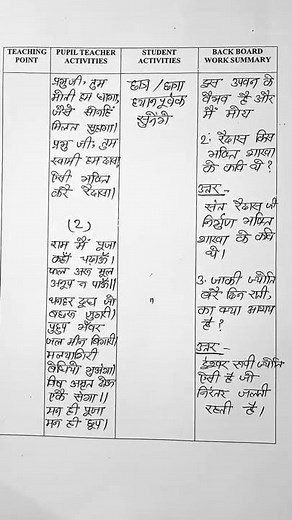 TEACHING POINT
PUPIL TEACHER ACTIVITIES
STUDENT ACTIVITIES
BACK BOARD WORK SUMMARY
प्रभु जी, तुम
मोती हम धागा,
जैसे सोनहिं
मिलत सुहागा।
प्रभु जी, तुम
स्वामी हम दासा,
ऐसी भक्ति
करे रैदासा।
(2)
राम मैं पूजा
कहाँ चढ़ाऊँ।
फल अरु मूल
अनूप न पाऊँ॥
थनहर दूध जो
बछरू जुठारी।
पुहुप भँवर
जल मीन बिगारी
मलयागिरी
बेधियो भुअंगा।
विष अमृत दोऊ
एकै संगा॥
मन ही पूजा
मन ही धूप।
छात्र / छात्रा
ध्यानपूर्वक
सुनेंगे
"
इस उपवन के
वैभव है और
मैं मोरा
2. रैदास किस
भक्ति शाखा
के कवि थे?
उत्तर :-
संत रैदास जी
निर्गुण भक्ति
शाखा के कवि
थे।
3. जाकी ज्योति
बरै दिन राती,
का क्या आशय
है?
उत्तर :-
ईश्वर रूपी ज्योति
ऐसी है जो
निरंतर जलती
रहती है।